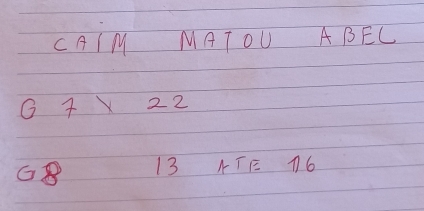 CAIM MATOU ABEL
G 7 \ 22
G8 13 ATE 16